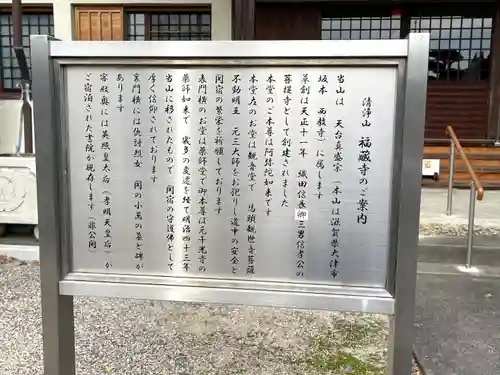 清浄山 福蔵寺のご案内
当山は 天台真盛宗(本山は滋賀県大津市
坂本 西教寺)に属します
草創は天正十一年 織田信長卿三男信孝公の
菩提寺として創建されました
本堂のご本尊は阿弥陀如来です
本堂左のお堂は観音堂で 馬頭観世音菩薩
不動明王 元三大師をお祀りし道中の安全と
関宿の繁栄を祈願しております
表門横のお堂は薬師堂で御本尊は元千光寺の
薬師如来で 幾多の変遷を経て明治四十三年
当山に移されたもので 関宿の守護佛として
厚く信仰されております
裏門横には仇討烈女 関の小萬の墓と碑が
あります
客殿奥には英照皇太后(孝明天皇后)が
ご宿泊された書院が現存します(非公開)